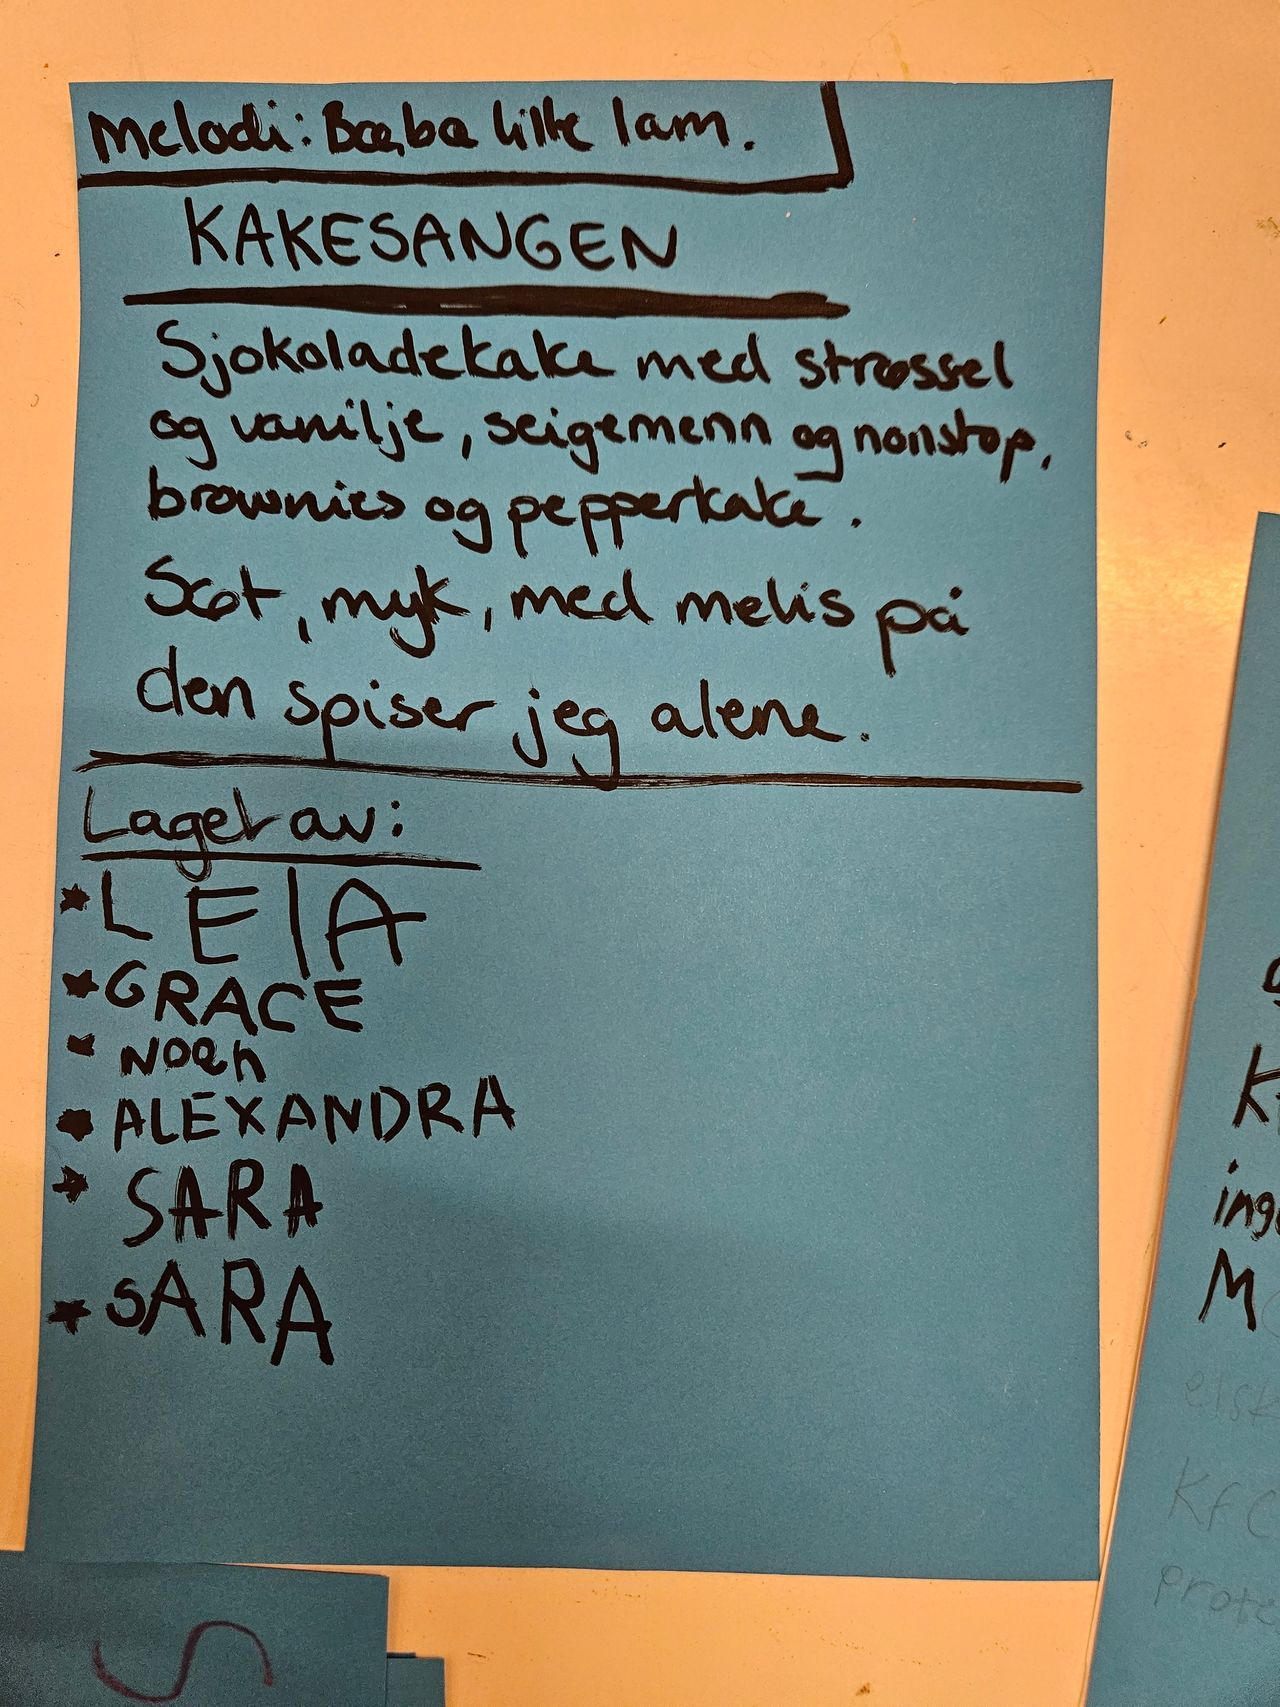 Melodi: Bæ,bæ lille lam.
KAKESANGEN
Sjokoladekake med strøssel
og vanilje, seigemenn og nonstop,
brownies og pepperkake.
Søt, myk, med melis på
den spiser jeg alene.
Laget av:
★ LEIA
★ GRACE
★ Noah
★ ALEXANDRA
★ SARA
★ SARA
K
ing
M
elsk
KFC
prote
S